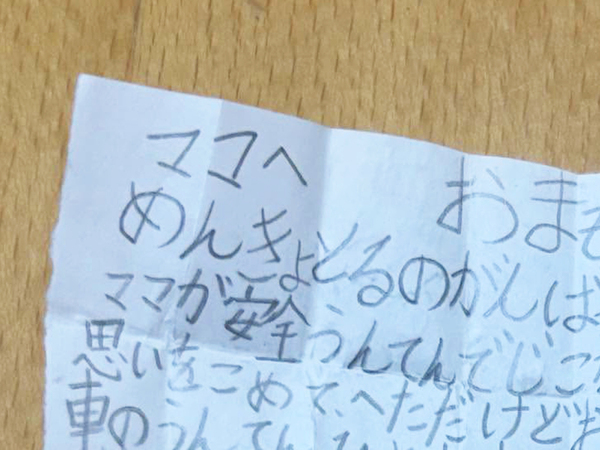 マコへ
おまも
めんきょとるのがんば
ママが安全うんてんでじこ
思いをこめて、へただけどお
車のうんてん